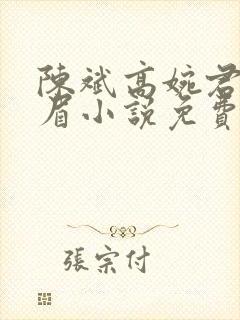 陳斌高婉君
眉小說免費
張宗付